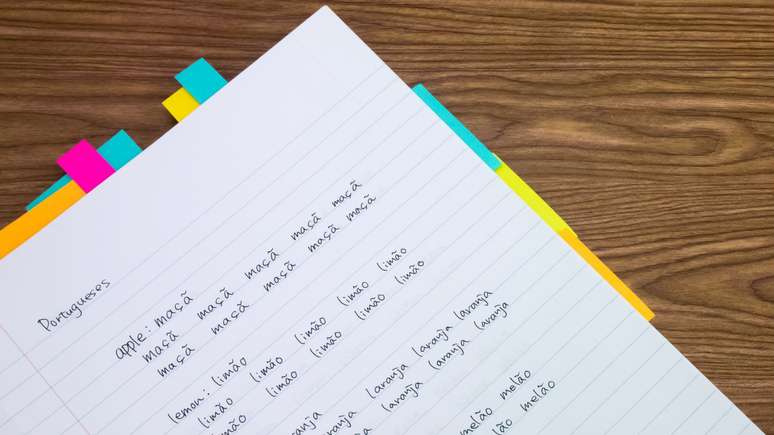 Portugueses
apple: maçã
maçã maçã maçã maçã maçã
maçã maçã maçã maçã maçã
lemon: limão
limão limão limão limão limão
limão limão limão limão limão
laranja
laranja laranja laranja laranja
laranja laranja laranja
melão melão
melão